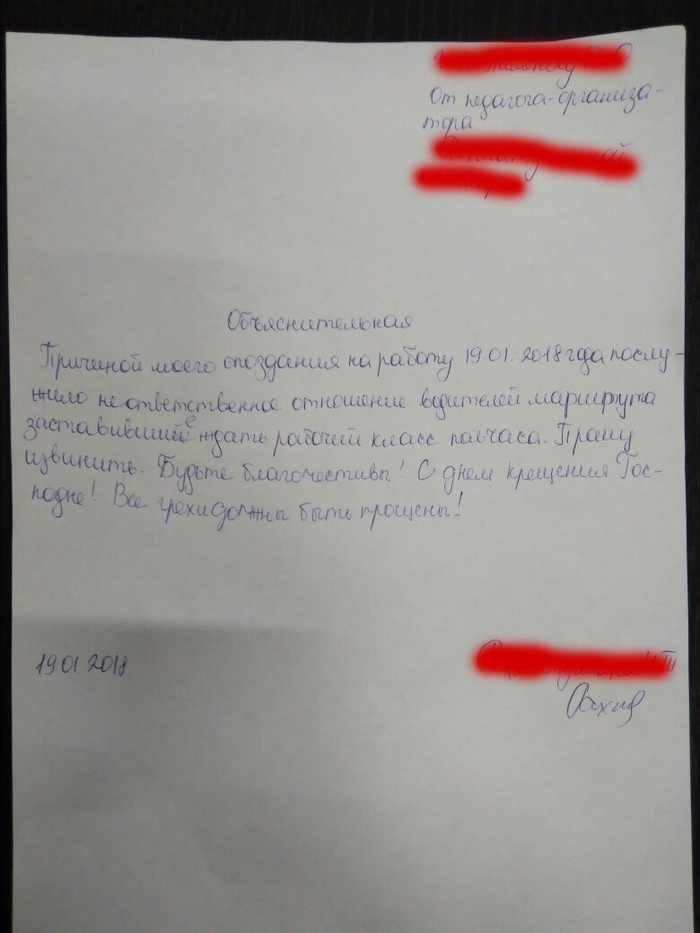 От педагога-организа-
тора
Объяснительная
Причиной моего опоздания на работу 19.01.2018 года послу-
жило не ответственное отношение водителей маршрута
заставившие ждать рабочий класс полчаса. Прошу
извинить. Будьте благочестивы! С днем крещения Гос-
подне! Все грехи должны быть прощены!
19.01.2018